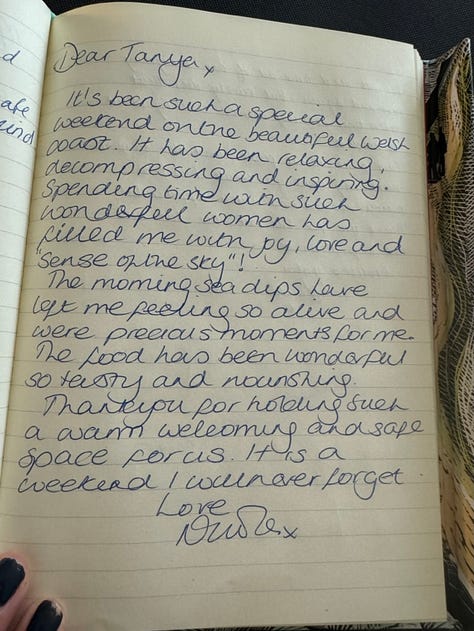 d
afe
und
Dear Tanya x
It's been such a special
weekend on the beautiful welsh
coast. It has been relaxing,
decompressing and inspiring.
Spending time with such
wonderful women has
filled me with joy, love and
"sense of the sky"!
The morning sea dips have
left me feeling so alive and
were precious moments for me.
The food has been wonderful
so tasty and nourishing.
Thankyou for holding such
a warm welcoming and safe
space for us. It is a
weekend I will never forget.
Love
x